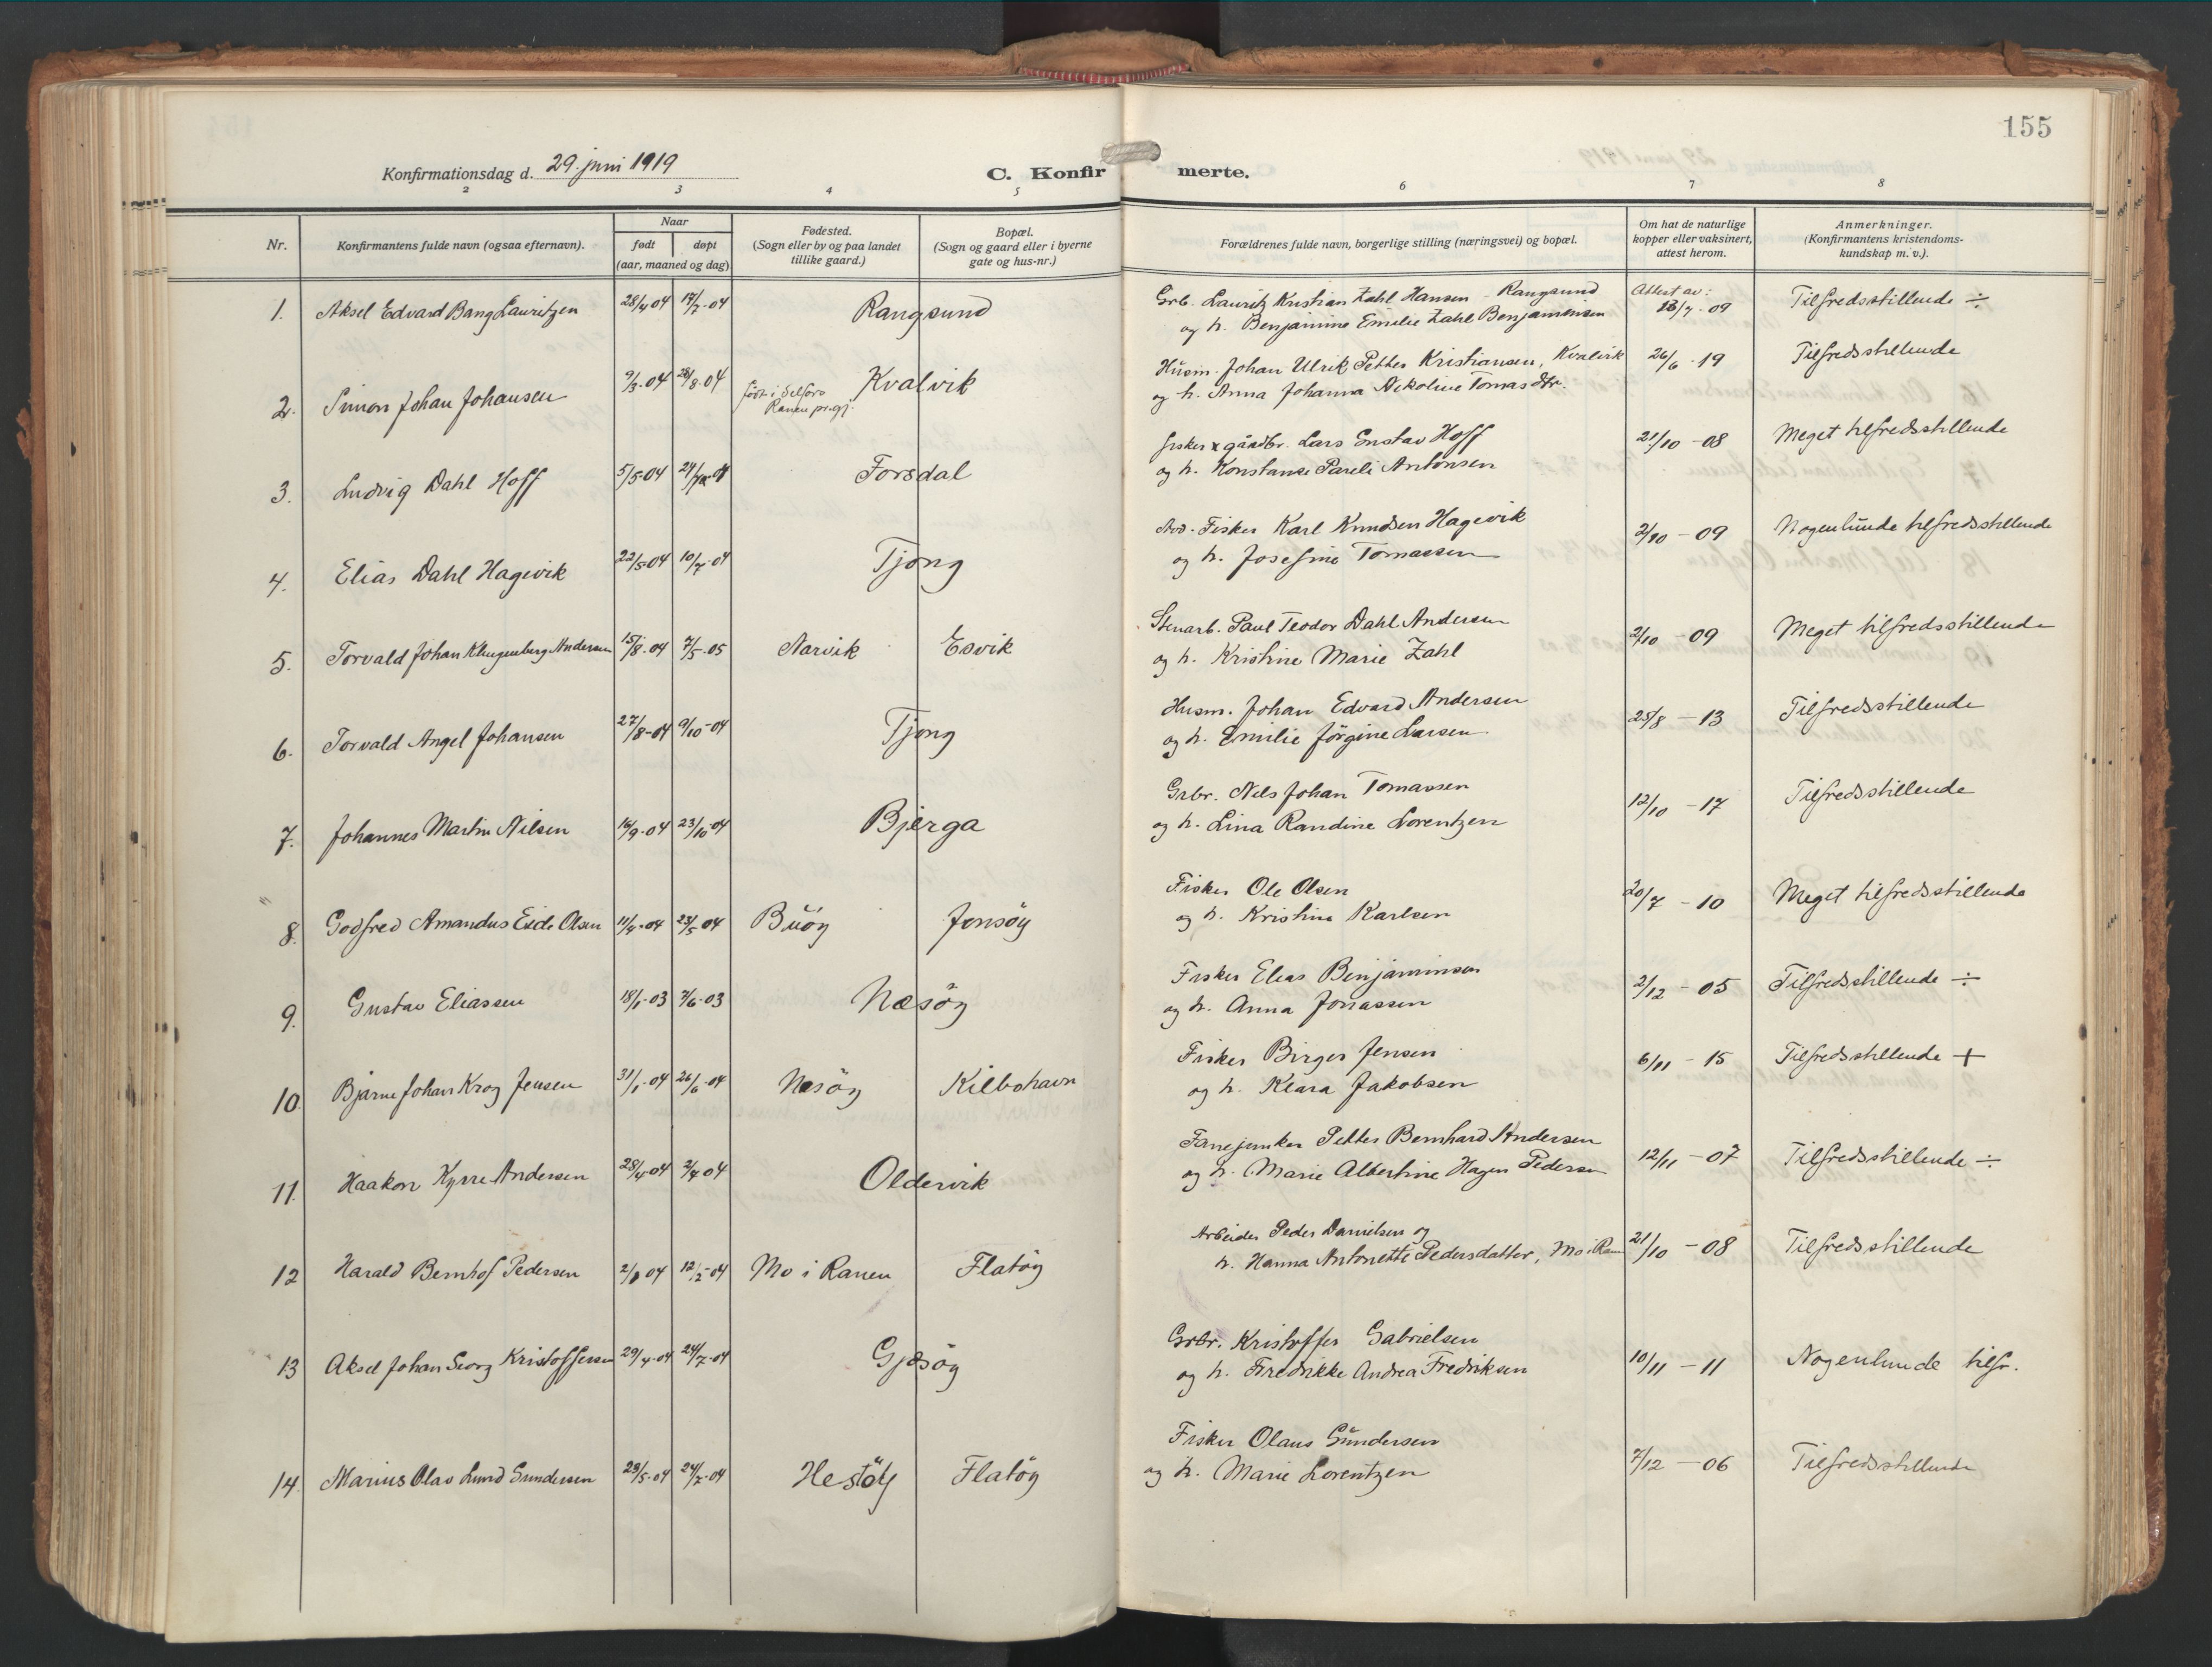 155
Konfirmationsdag d. 29. juni 1919
C. Konfirmerte.
2 3 4 5 6 7 8
Nr.
Konfirmantens fulde navn (ogsaa efternavn).
Naar
født døpt
(aar, maaned og dag)
Fødested.
(Sogn eller by og paa landet
tillike gaard.)
Bopæl.
(Sogn og gaard eller i byerne
gate og hus-nr.)
Forældrenes fulde navn, borgerlige stilling (næringsvei) og bopæl.
Om hat de naturlige
kopper eller vaksinert,
attest herom.
Anmerkninger.
(Konfirmantens kristendoms-
kundskap m. v.).
1. Aksel Edvard Bang Lauritzen 28/4 04 17/7-04 Rangsund
Grb. Lauritz Kristian Zahl Hansen - Rangsund
og h. Benjamine Emilie Zahl Benjaminsen
Attest av:
/7-09 Tilfredsstillende ÷
2. Simon Johan Johansen 9/3-04 28/8-04
født i Selfors
Ranen pr.gj.
Kvalvik
Husm. Johan Ulrik Petter Kristiansen, Kvalvik
og h. Anna Johanna Nikoline Tomasdtr.
26/6-19 Tilfredsstillende
3. Ludvig Dahl Hoff 5/5-04 Forsdal
Fisker & gårdbr. Lars Gustav Hoff
og h. Konstanse Pareli Antonsen
21/10-08 Meget tilfredsstillende
4. Elias Dahl Hagevik 22/5-04 10/7-04 Tjong
Fisker Karl Knudsen Hagevik
og h. Josefine Tomassen
2/10-09 Nogenlunde tilfredsstillende
5. Torvald Johan Klingenberg Andersen 15/8-04 7/5-05 Narvik Esvik
Stenarb. Paul Teodor Dahl Andersen
og h. Kristine Marie Zahl
2/10-09 Meget tilfredsstillende
6. Torvald Angel Johansen 27/8-04 9/10-04 Tjong
Husm. Johan Edvard Andersen
og h. Emilie Jörgine Larsen
25/8-13 Tilfredsstillende
7. Johannes Martin Nilsen 16/9-04 23/10-04 Bjerga
Grbr. Nils Johan Tomassen
og h. Lina Randine Lorentzen
12/10-17 Tilfredsstillende
8. Godfred Amandus Eide Olsen 11/4-04 23/5-04 Buöy Jonsöy
Fisker Ole Olsen
og h. Kristine Karlsen
20/7-10 Meget tilfredsstillende
9. Gustav Eliassen 18/1-03 7/6-03 Næsöy
Fisker Elias Benjaminsen
og h. Anna Jonassen
2/12-05 Tilfredsstillende ÷
10. Bjarne Johan Krog Jensen 31/1-04 26/6-04 Nesöy Kilbohavn
Fisker Birger Jensen
og h. Klara Jakobsen
6/11-15 Tilfredsstillende +
11. Haakon Kyrre Andersen 28/4-04 2/7 04 Oldervik
Fanejunker Petter Bernhard Andersen
og h. Marie Albertine Hagen Pedersen
12/11-07 Tilfredsstillende ÷
12 Harald Bernhof Pedersen 2/1 04 12/2-04 Mo i Ranen Flatöy
Arbeider Peder Danielsen og
h. Hanna Antonette Pedersdatter, Mo i Ran
21/10-08 Tilfredsstillende
13 Aksel Johan Georg Kristoffersen 29/4-04 24/7-04 Gjæsöy
Grbr. Kristoffer Gabrielsen
og h. Fredrikke Andrea Fredriksen
10/11-11 Nogenlunde tilfr.
14. Marius Olav Lund Gundersen 23/5-04 24/7-04 Hestöy Flatöy
Fisker Olaus Gundersen
og h. Marie Lorentzen
7/12-06 Tilfredsstillende